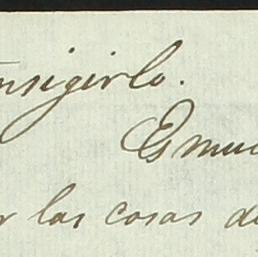 nsigirlo.
Es muc
r las cosas de